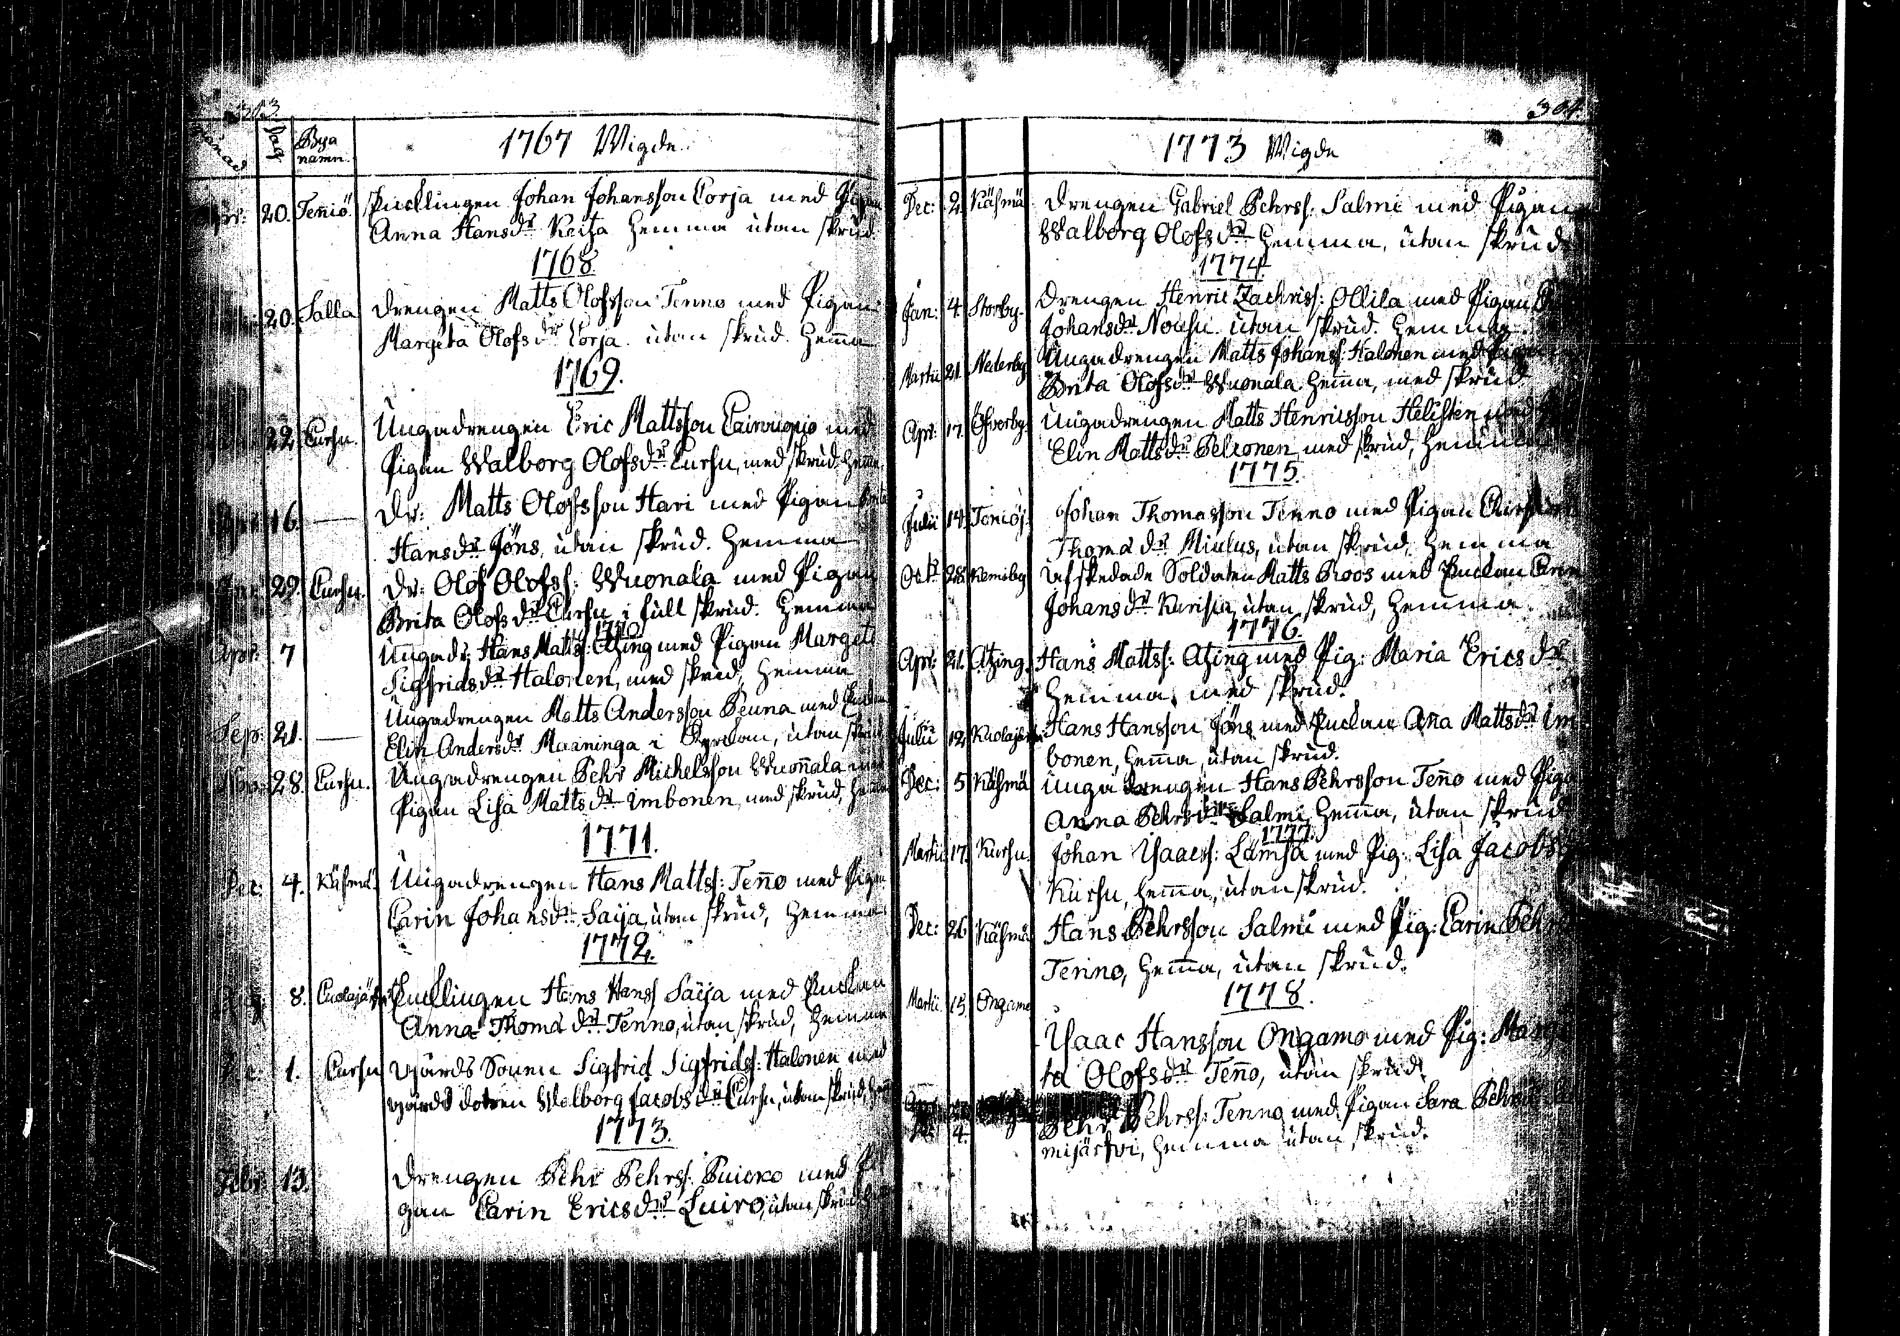 303.
Månad Dag Bya namn. 1767 Wigde.
20. Tenniö. Enchlingen Johan Johansson Corja med Pigan
Anna Hansdr Keita hemma utan skrud.
1768
20. Salla Drengen Matts Olofsson Tenno med Pigan
Margeta Olofsdr Corja utan skrud. Hemma
1769.
22 Cursu. Ungadrengen Eric Mattsson Cairinopio med
Pigan Walborg Olofsdr Cursu, med skrud, hemma.
16. — Dr: Matts Olofsson Hari med Pigan Brita
Hansdr Jöns, utan skrud. Hemma
29. Cursu. Dr: Olof Olofss: Wuonala med Pigan
Brita Olofsdr Cursu i full skrud. Hemma
1770
Apr: 7 Ungadr: Hans Mattss: Atzing med Pigan Margeta
Sigfridsdr Halonen, med skrud, hemma
Sep: 21. — Ungadrengen Matts Andersson Peuna med Enckan
Elin Andersdr Maaninga i Kyrckan, utan skrud
28. Cursu. Ungadrengen Pehr Michelsson Wuonnala med
Pigan Lisa Mattsdr Imbonen, med skrud, hemma
1771.
Dec: 4. Käsmä. Ungadrengen Hans Mattss: Tenno med Pigan
Carin Johansdr Saija, utan skrud, hemma
1772.
8. Cuolajärfvi Encklingen Hans Hanss Saija med Enckan
Anna Thomædr Tenno, utan skrud, hemma
Dec: 1. Cursu Wärds Sonen Sigfrid Sigfridss: Halonen med
wärds dotren Walborg Jacobsdr Cursu, utan skrud, hemma
1773.
Febr: 13. Drengen Pehr Pehrss. Puicko med Pi-
gan Carin Ericsdr Luiro, utan skrud,
304.
1773 Wigde
Dec: 2. Käsmä Drengen Gabriel Pehrss: Salmi med Pigan
Walborg Olofsdr hemma, utan skrud
1774.
Jan: 4. Storby. Drengen Henric Zachriss: Ollila med Pigan
Johansdr Nousu utan skrud. hemma.
Martii 21. Nederby Ungadrengen Matts Johanss: Halonen med Pigan
Brita Olofsdr Wuonala hemma, med skrud
Apr: 17. Öfverby. Ungadrengen Matts Henricsson Helisten med
Elin Mattsdr Pelconen med skrud, hemma
1775.
Julii 14. Teniöj. Johan Thomasson Tenno med Pigan
Thomædr Miulus, utan skrud, hemma
Oct: 28. Kemiby Afskedade Soldaten Matts Roos med Enckan Carin
Johansdr Karista, utan skrud, hemma.
1776.
Apr: 21. Atzing. Hans Mattss: Atzing med Pig: Maria Ericsdr
hemma, med skrud.
Julii 12. Kuolajärfvi Hans Hansson Jöns med Enckan Aña Mattsdr Im-
bonen, hemma, utan skrud.
Dec: 5 Käsmä Unga drengen Hans Pehrsson Teño med Pigan
Anna Pehrsdr Salmi, hemma, utan skrud
1777.
Martii 17. Kursu. Johan Isaacss: Lämsä med Pig: Lisa Jacobsdr
Kursu, hemma, utan skrud.
Dec: 26 Käsmä Hans Pehrsson Salmi med Pig: Carin Pehrsdr
Tenno, hemma, utan skrud.
1778.
Martii 15. Ongamo Isaac Hansson Ongamo med Pig: Marge-
ta Olofsdr Teño, utan skrud,
4. Pehr Pehrss: Tenno med Pigan Sara Pehrsdr
mijärfvi, hemma utan skrud.